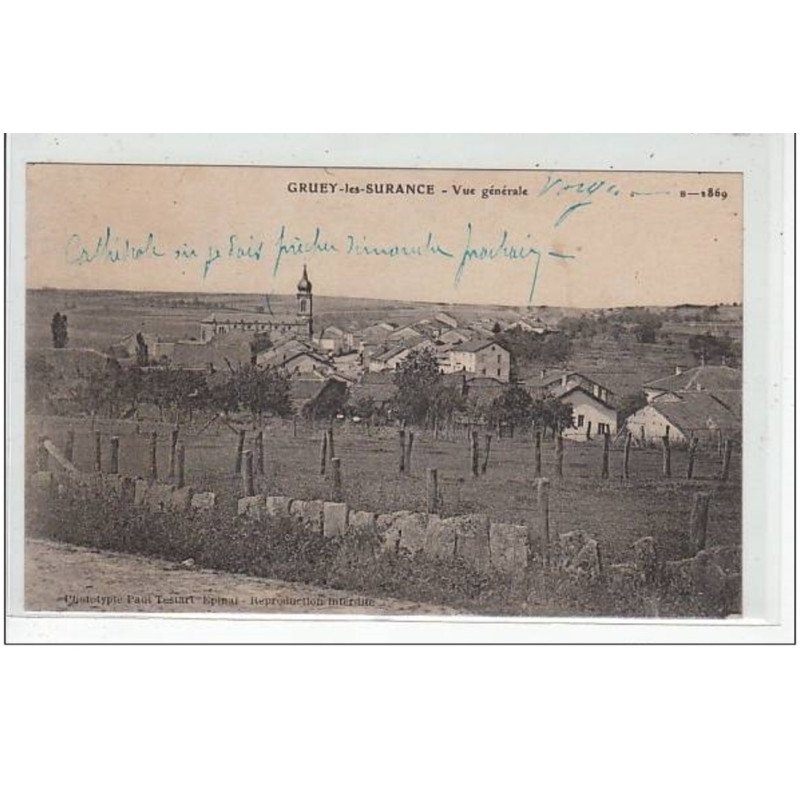 GRUEY-les-SURANCE - Vue générale Vosges B—1869
Cathédrale où je dois prêcher dimanche prochain
Phototypie Paul Testart Epinal - Reproduction interdite